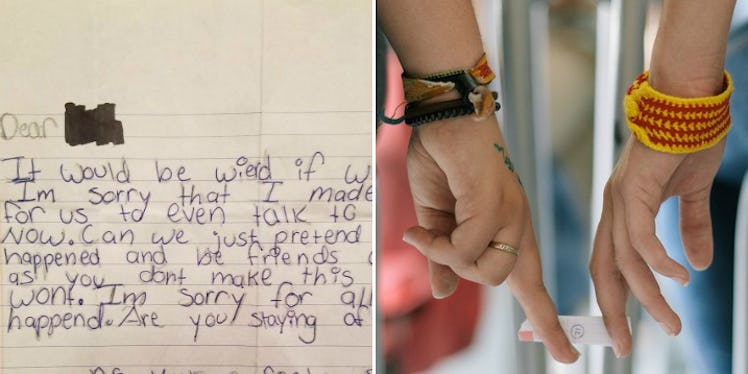 Dear
It would be wierd if w
Im sorry that I made
for us to even talk to
Now. Can we just pretend
happened and be friends
as you dont make this
wont. Im sorry for all
happend. Are you staying at